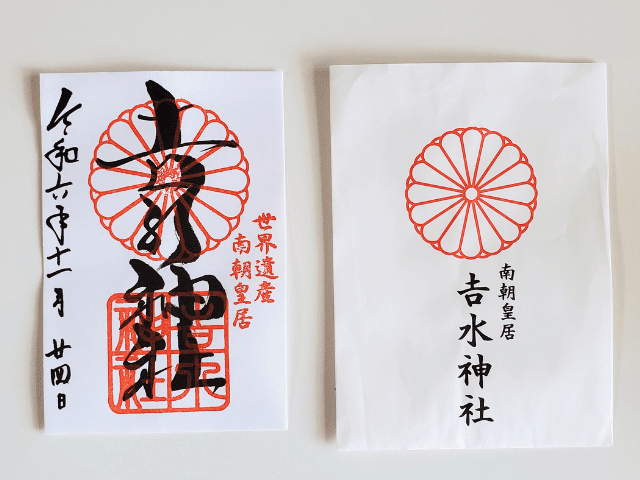 世界遺産
南朝皇居
𠮷水神社
吉水
神社
令和六年十一月廿四日
南朝皇居
𠮷水神社